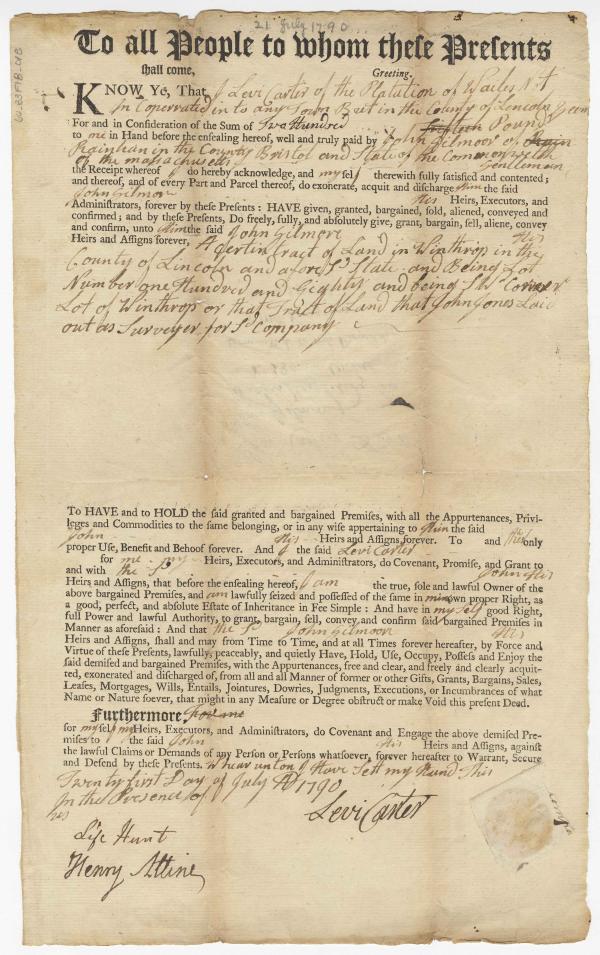 21 July 1790
To all People to whom these Presents
shall come, Greeting.
KNOW Ye, That I Levi Carter of the Plantation of Wailes N.t
In Coperrated in to any Town But in the County of Lincoln
For and in Consideration of the Sum of Two Hundred Pound
to me in Hand before the ensealing hereof, well and truly paid by John Gilmoor of
Rainham in the County Bristol and State of the Common welth
of the massachusetts Gentleman
the Receipt whereof I do hereby acknowledge, and my self therewith fully satisfied and contented;
and thereof, and of every Part and Parcel thereof, do exonerate, acquit and discharge Him the said
John Gilmor His Heirs, Executors, and
Administrators, forever by these Presents: HAVE given, granted, bargained, sold, aliened, conveyed and
confirmed; and by these Presents, Do freely, fully, and absolutely give, grant, bargain, sell, aliene, convey
and confirm, unto Him the said John Gilmore His
Heirs and Assigns forever, A certin tract of Land in Winthrop in the
County of Lincoln and afore Sd State and Being Lot
Number one Hundred and Eighty and being S.W. Corner
Lot of Winthrop or that Tract of Land that John Jones Laid
out as Surveyer for Sd Company
To HAVE and to HOLD the said granted and bargained Premises, with all the Appurtenances, Privi-
leges and Commodities to the same belonging, or in any wise appertaining to Him the said
John His Heirs and Assigns forever. To and only
proper Use, Benefit and Behoof forever. And I the said Levi Carter
for me my Heirs, Executors, and Administrators, do Covenant, Promise, and Grant to
and with the Sd John His
Heirs and Assigns, that before the ensealing hereof, I am the true, sole and lawful Owner of the
above bargained Premises, and am lawfully seized and possessed of the same in own proper Right, as
a good, perfect, and absolute Estate of Inheritance in Fee Simple: And have in my self good Right,
full Power and lawful Authority, to grant, bargain, sell, convey and confirm said bargained Premises in
Manner as aforesaid: And that the Sd John Gilmoor His
Heirs and Assigns, shall and may from Time to Time, and at all Times forever hereafter, by Force and
Virtue of these Presents, lawfully, peaceably, and quietly Have, Hold, Use, Occupy, Possess and Enjoy the
said demised and bargained Premises, with the Appurtenances, free and clear, and freely and clearly acquit-
ted, exonerated and discharged of, from all and all Manner of former or other Gifts, Grants, Bargains, Sales,
Leases, Mortgages, Wills, Entails, Jointures, Dowries, Judgments, Executions, or Incumbrances of what
Name or Nature soever, that might in any Measure or Degree obstruct or make Void this present Dead.
Furthermore
for my self my Heirs, Executors, and Administrators, do Covenant and Engage the above demised Pre-
mises to the said John His Heirs and Assigns, against
the lawful Claims or Demands of any Person or Persons whatsoever, forever hereafter to Warrant, Secure
and Defend by these Presents. Whear unto I Have Sett my Hand this
Twenty first Day of July AD 1790
In the Presence of
Levi Carter
Henry Attine